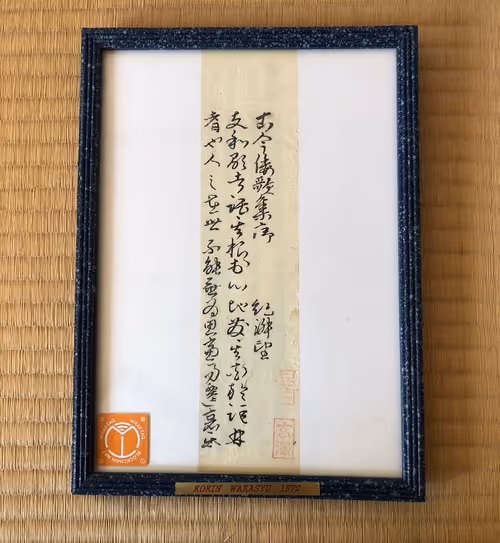 古今倭歌集序 紀淑望
夫和歌者託其根於心地發其花於詞林
者也人之在世不能無為思慮易遷哀
KOKIN WAKASYU 1972